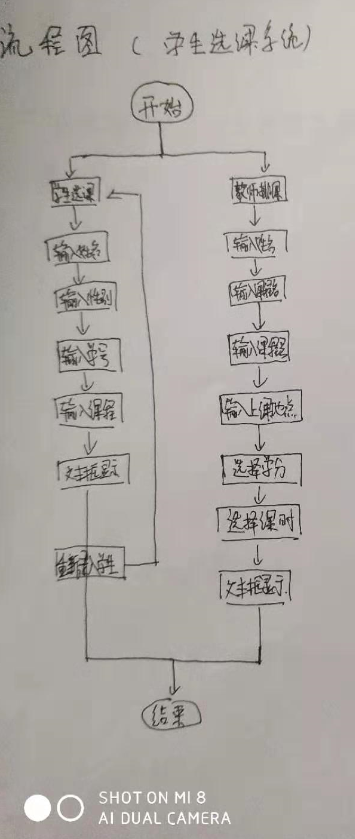 流程图 (学生选课系统)
开始
学生选课
输入姓名
输入性别
输入学号
输入课程
文本框显示
教师排课
输入姓名
输入课程名
输入课程号
输入上课地点
选择学分
选择课时
文本框显示
结束
SHOT ON MI 8
AI DUAL CAMERA